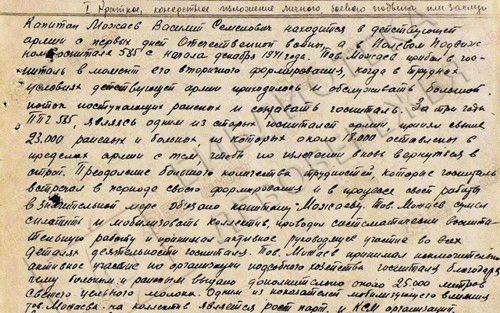 I. Краткое, конкретное изложение личного боевого подвига или заслуг
Капитан Можаев Василий Семенович находится в действующей
армии с первых дней Отечественной войны, а в Полевом Подвиж-
ном госпитале 585 с начала декабря 1941 года. Тов. Можаев прибыл в гос-
питаль в момент его вторичного формирования, когда в трудных
условиях действующей армии приходилось и обслуживать большой
поток поступающих раненых и создавать госпиталь. За три года
ППГ 585, являясь одним из старых госпиталей армии, принял свыше
23.000 раненых и больных из которых около 18.000 оставлены в
пределах армии с тем чтобы по излечении вновь вернуться в
строй. Преодоление большого количества трудностей, которые госпиталь
встречал в периоде своего формирования и в процессе своей работы
в значительной мере обязано капитану Можаеву. Тов. Можаев сумел
сплотить и мобилизовать коллектив, проводил систематически воспита-
тельную работу и принимал активное руководящее участие во всех
деталях деятельности госпиталя. Тов. Можаев принимал исключительно
активное участие по организации подсобного хозяйства госпиталя благодаря
чему больным и раненым выдано дополнительно около 25.000 литров
свежего цельного молока. Одним из показателей мобилизующего влияния
тов. Можаева на коллектив является рост парт. и КСМ организаций.